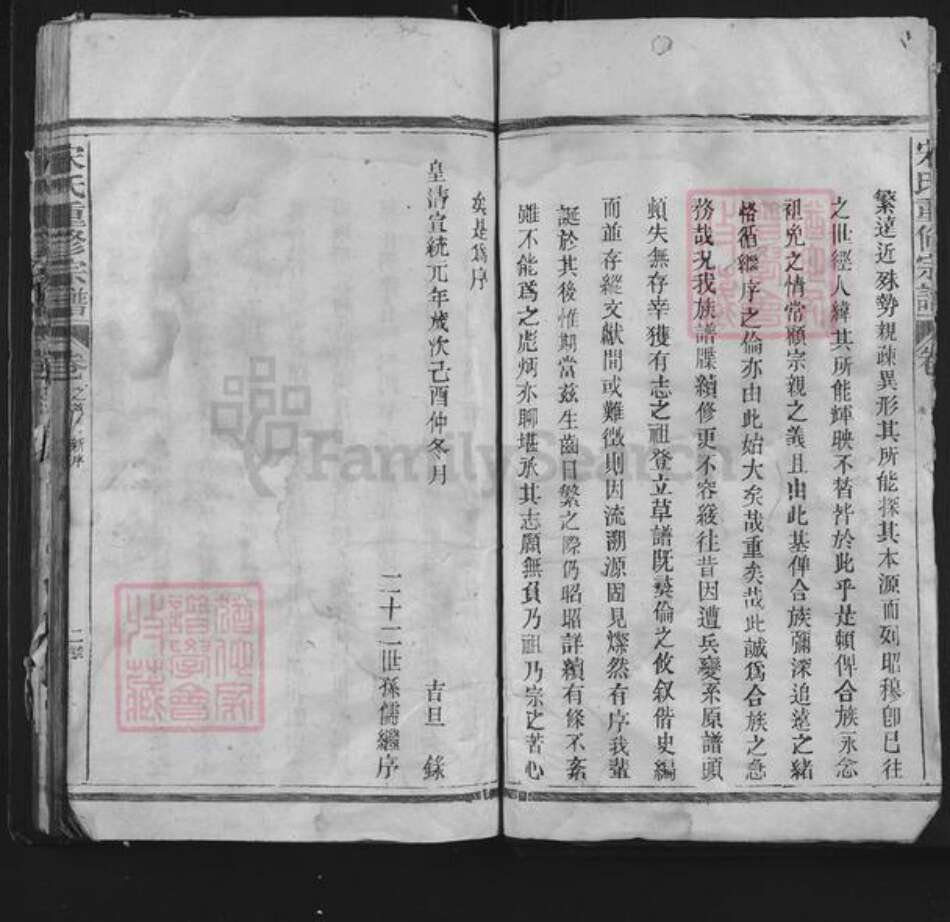 宋氏重修宗譜 卷
繁遠近殊勢親疎異形其所能探其本源而列昭穆卽已往
之世經人緯其所能輝映不替皆於此乎是賴俾合族永念
祖免之情常願宗親之義且由此基俾合族彌深追遠之緒
恪循繼序之倫亦由此始大矣哉重矣哉此誠爲合族之急
務哉况我族譜牒續修更不容緩往昔因遭兵變系原譜頭
頗失無存幸獲有志之祖登立草譜旣彝倫之攸叙偕史編
而並存縱文獻間或難徵則因流溯源固見燦然有序我輩
誕於其後惟期當茲生齒日繁之際仍昭昭詳續有條不紊
雖不能爲之彪炳亦聊堪承其志願無負乃祖乃宗之苦心
矣是爲序
皇清宣統元年歲次己酉仲冬月 吉旦 錄
二十二世孫儒繼序
宋氏重修宗譜 卷之首 新序 二
FamilySearch